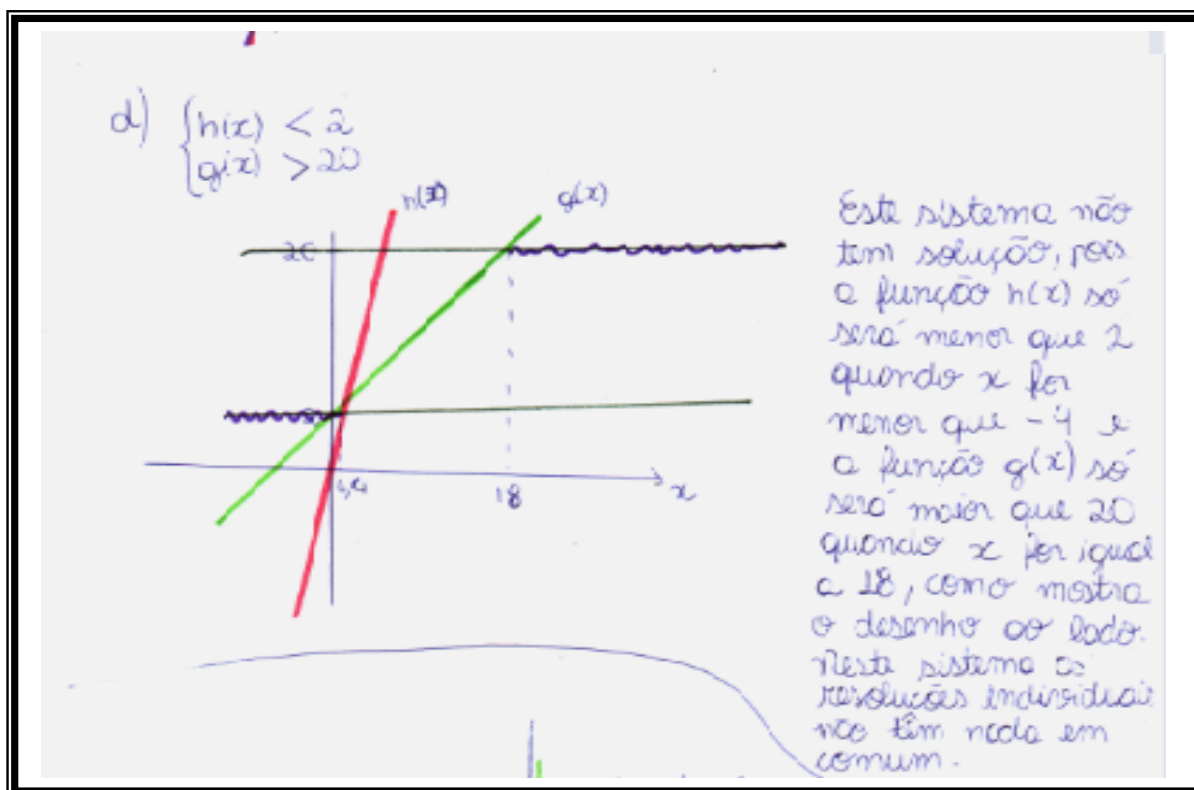 d) { h(x) < 2
{ g(x) > 20
h(x)
g(x)
20
18
x
Este sistema não
tem solução, pois
a função h(x) só
será menor que 2
quando x for
menor que -4 e
a função g(x) só
será maior que 20
quando x for igual
a 18, como mostra
o desenho ao lado.
Neste sistema as
resoluções individuais
não têm nada em
comum.